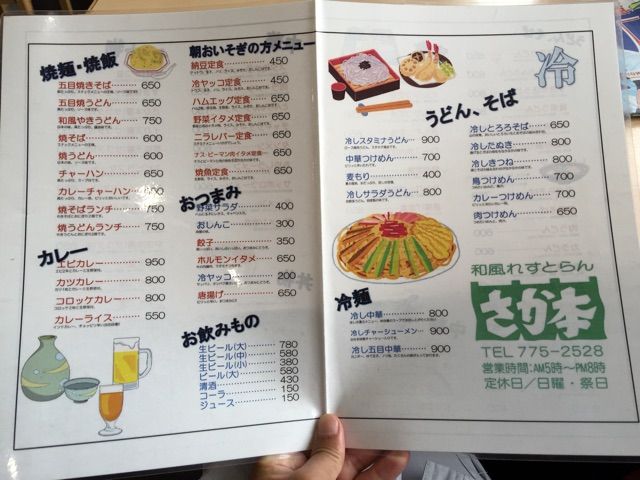 焼麺・焼飯
五目焼きそば 650
五目焼うどん 650
和風やきうどん 750
焼そば 600
焼うどん 600
チャーハン 650
カレーチャーハン 800
焼そばランチ 750
焼うどんランチ 750
カレー
エビカレー 950
カツカレー 800
コロッケカレー 800
カレーライス 550
朝おいそぎの方メニュー
納豆定食 450
冷ヤッコ定食 450
ハムエッグ定食 650
野菜イタメ定食 650
ニラレバー定食 650
ナス・ピーマン肉イタメ定食 650
焼魚定食 650
おつまみ
野菜サラダ 400
おしんこ 300
餃子 350
ホルモンイタメ 650
冷ヤッコ 200
唐揚げ 650
お飲みもの
生ビール(大) 780
生ビール(中) 580
生ビール(小) 380
ビール(大) 580
清酒 430
コーラ 150
ジュース 150
冷
うどん、そば
冷しスタミナうどん 900
中華つけめん 700
麦もり 400
冷しサラダうどん 800
冷しとろろそば 650
冷したぬき 800
冷しきつね 800
鳥つけめん 700
カレーつけめん 700
肉つけめん 650
冷麺
冷し中華 800
冷しチャーシューメン 900
冷し五目中華 900
和風れすとらん
さか本
TEL 775-2528
営業時間:AM5時〜PM8時
定休日/日曜・祭日